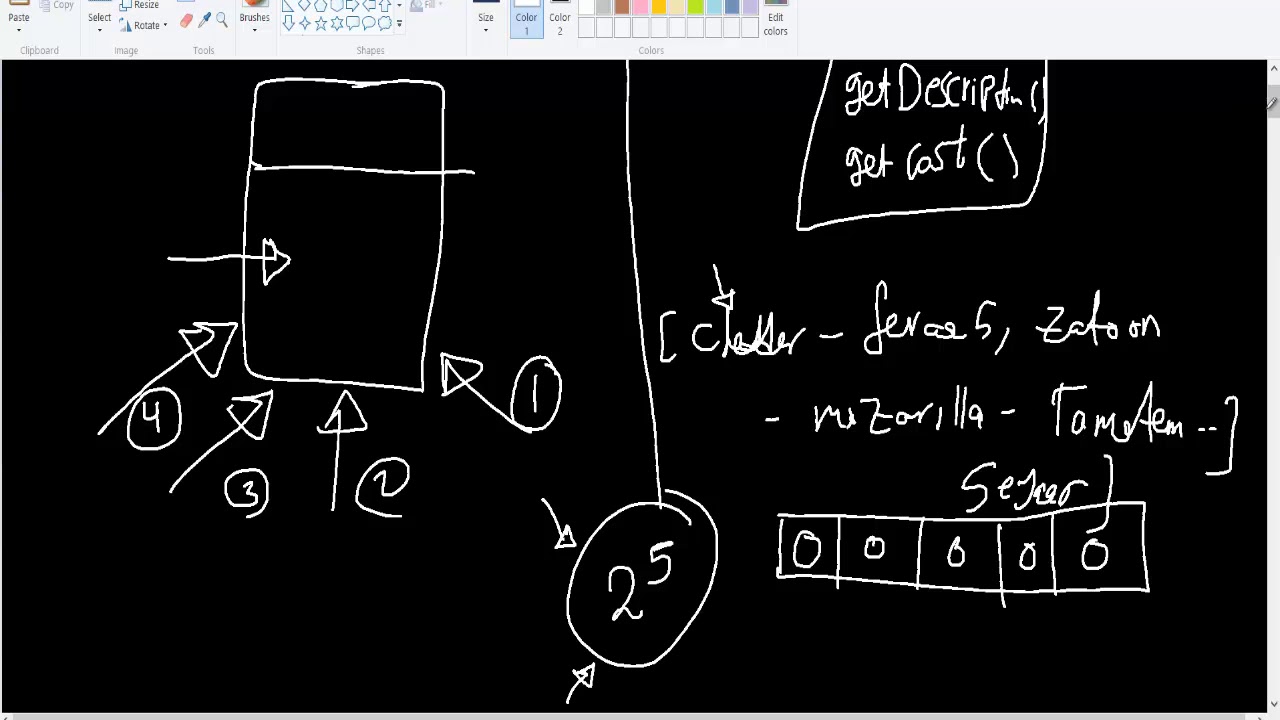 Copy
Resize
Paste
Select
Rotate
Brushes
Fill
Size
Color
1
Color
2
Edit
colors
Clipboard
Image
Tools
Shapes
Colors
getDescription()
getCost()
zatoon
1
4
3
2
0 0 0 0 0
2^5